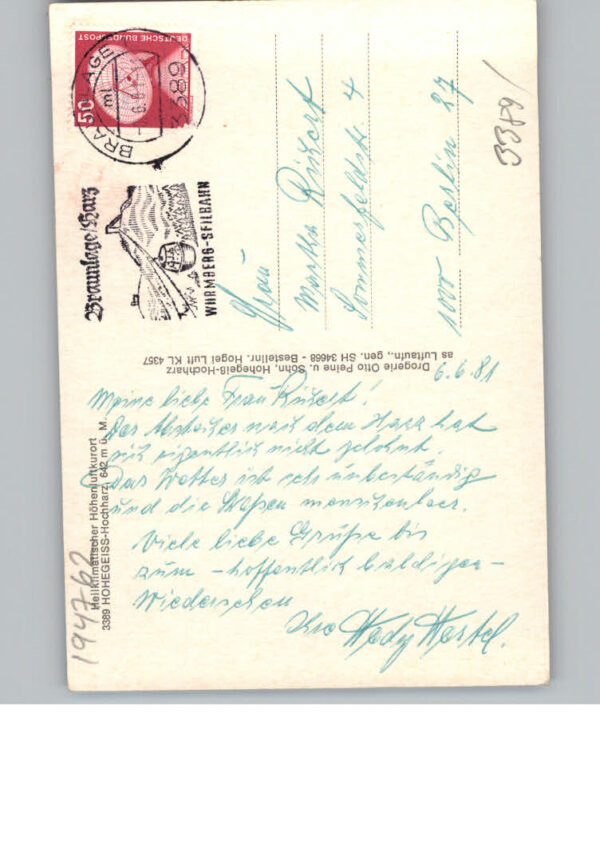 DEUTSCHE BUNDESPOST
50
BRAUNLAGE
ml
-6.6.81
3389
Braunlage/Harz
WURMBERG-SEILBAHN
3389/
Frau
Martha Rückert
Sommerfeldstr. 4
1000 Berlin 27
Drogerie Otto Peine u. Sohn, Hohegeiß-Hochharz
as Luftaufn., gen. SH 34668 - Bestellnr. Hogei Luft KL 4357
Heilklimatischer Höhenluftkurort
3389 HOHEGEISS-Hochharz, 642 m ü. M.
194762
6.6.81
Meine liebe Frau Rückert!
Der Abstecher nach dem Harz hat
sich eigentlich nicht gelohnt.
Das Wetter ist sehr unbeständig
und die Straßen menschenleer.
Viele liebe Grüße bis
zum - hoffentlich baldigen -
Wiedersehen
Ihre Hedy